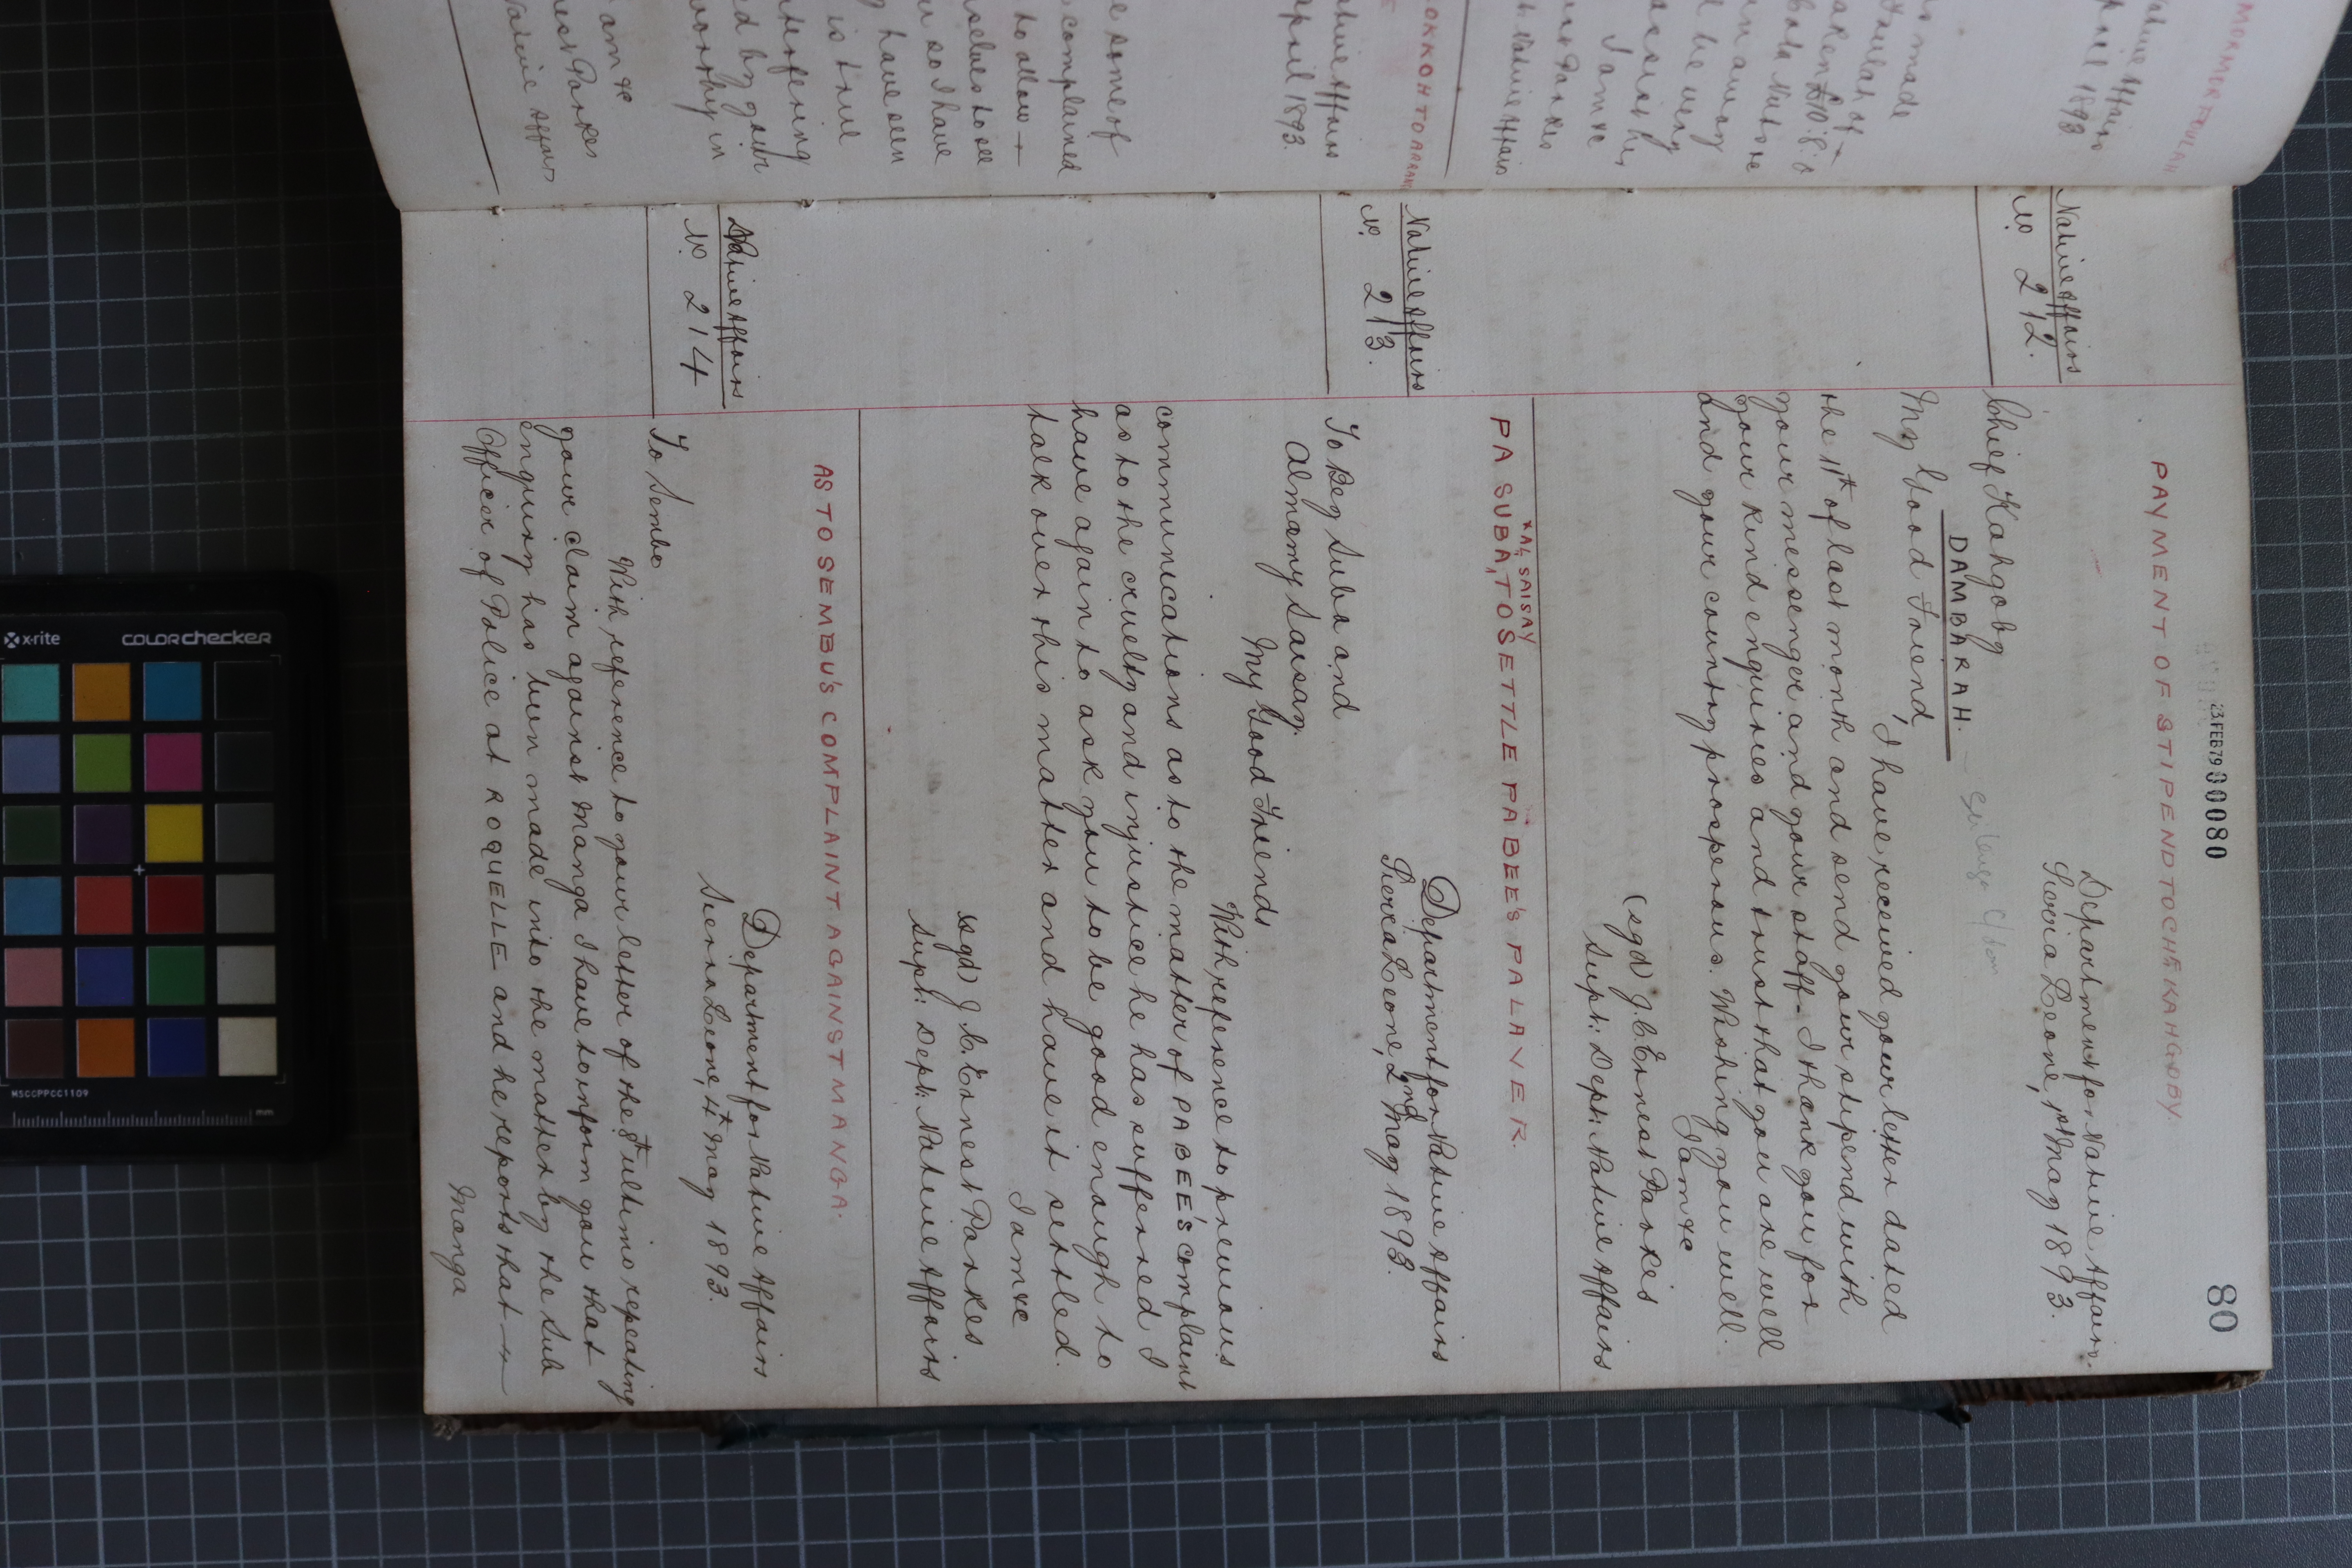 23 FEB 79 00080
80
PAYMENT OF STIPEND TO CHF KAHGOBY.
Native Affairs
No 212.
Department for Native Affairs.
Sierra Leone, 1st May 1893.
Chief Kahgoby
DAMBARAH.
My Good Friend,
I have received your letter dated
the 1st of last month and send your stipend with
your messenger and your staff. I thank you for
your kind enquiries and trust that you are well
and your country prosperous. Wishing you well.
I am &c
(sgd) J. C. Ernest Parkes
Supt: Dept: Native Affairs
x AL, SAISAY
PA SUBA, TO SETTLE PA BEE'S PALAVER.
Native Affairs
No. 213.
Department for Native Affairs
Sierra Leone, 2nd May 1893.
To Bey Suba and
Almamy Saisay.
My Good Friends
With reference to previous
communications as to the matter of PA BEE'S complaint
as to the cruelty and injustice he has suffered I
have again to ask you to be good enough to
talk over this matter and have it settled.
I am &c
sgd) J. C. Ernest Parkes
Supt: Dept: Native Affairs
AS TO SEMBU'S COMPLAINT AGAINST MANGA.
Native Affairs
No 214
Department for Native Affairs
Sierra Leone, 4th May 1893.
To Sembo
With reference to your letter of the 8th ultimo repeating
your claim against Manga I have to inform you that
enquiry has been made into the matter by the Sub
Officer of Police at ROQUELLE and he reports that
Manga
MORMOR FOULAH
Native Affairs
April 1893
is made
Foulah of
taken £10.8.0
I am &c
Parkes
Native Affairs
Native Affairs
April 1893.
some of
complained
to allow
so I have
have seen
is true
interfering
by your
in
I am &c
nest Parkes
Native Affairs
x-rite
colorchecker
MSCCPPCC1109
mm